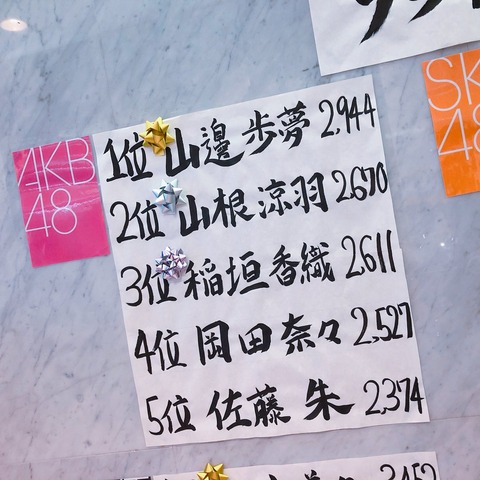 AKB
48
1位 山邊歩夢 2,944
2位 山根涼羽 2,670
3位 稲垣香織 2,611
4位 岡田奈々 2,527
5位 佐藤朱 2,374
SK
48
3,452